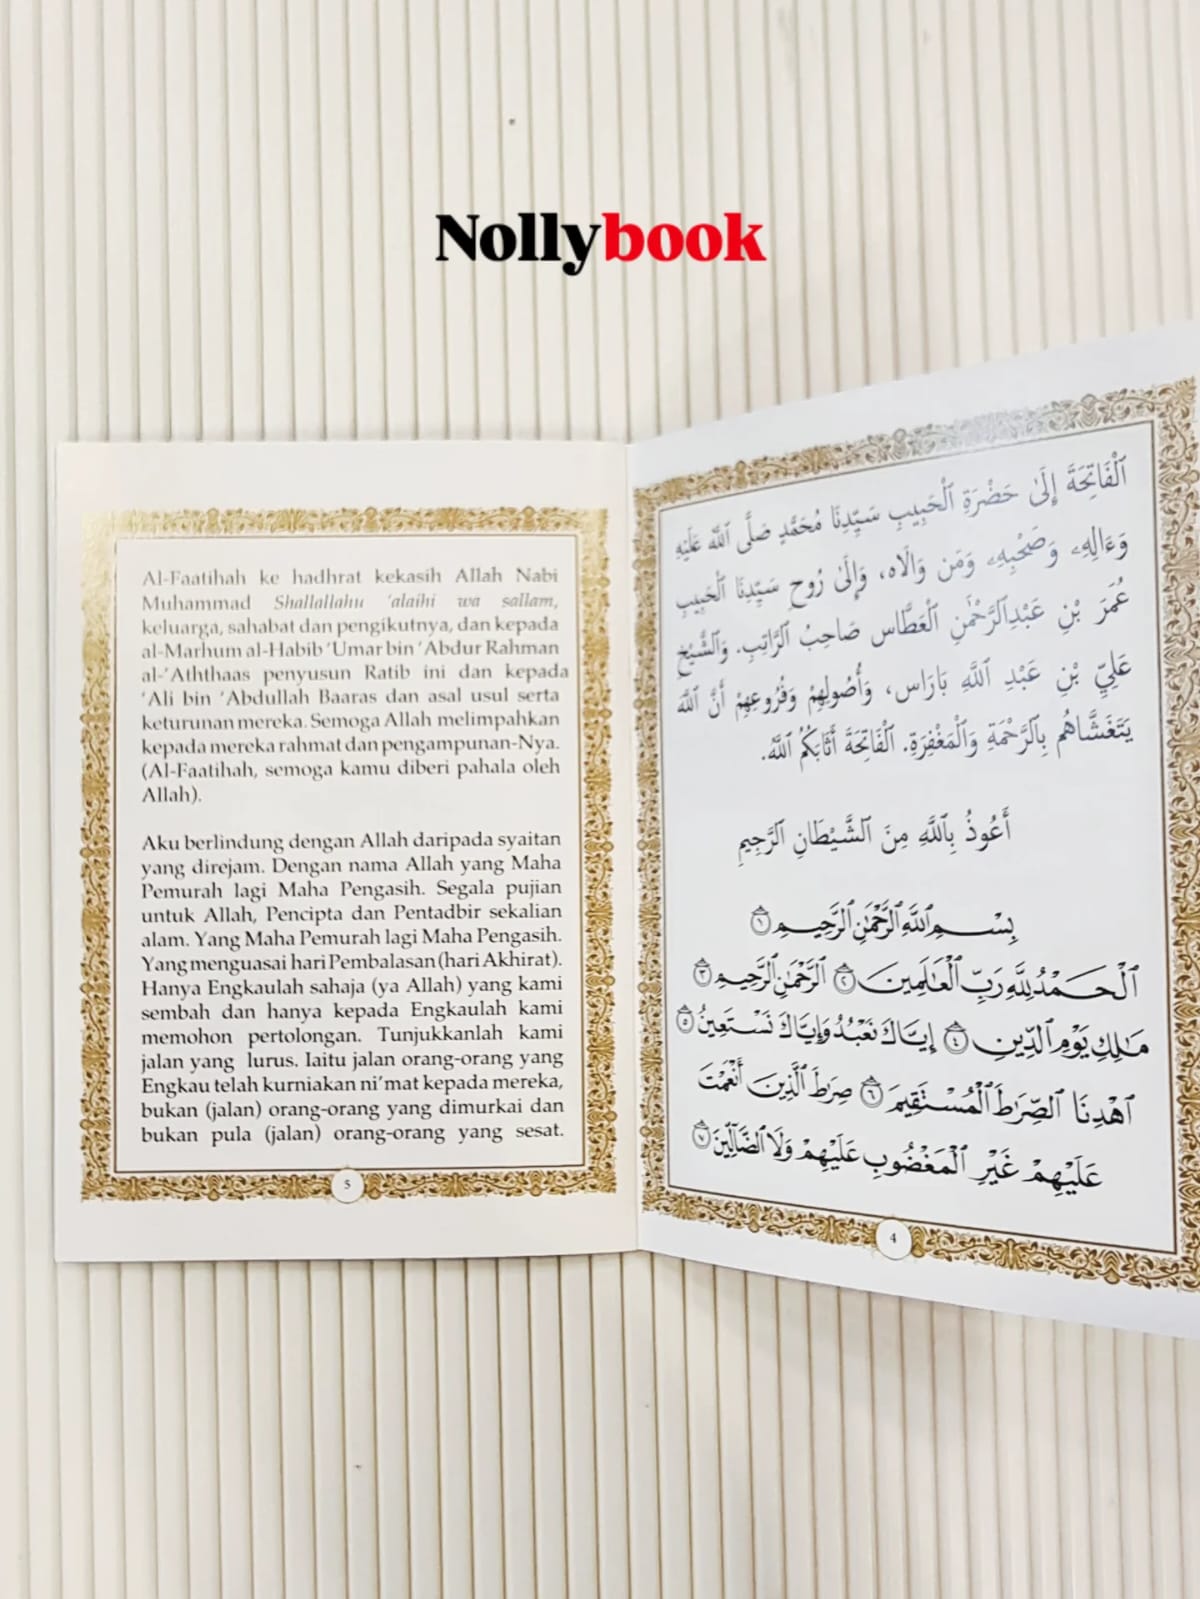 Nollybook
Al-Faatihah ke hadhrat kekasih Allah Nabi
Muhammad Shallallahu ‘alaihi wa sallam,
keluarga, sahabat dan pengikutnya, dan kepada
al-Marhum al-Habib ‘Umar bin ‘Abdur Rahman
al-‘Aththaas penyusun Ratib ini dan kepada
‘Ali bin ‘Abdullah Baaras dan asal usul serta
keturunan mereka. Semoga Allah melimpahkan
kepada mereka rahmat dan pengampunan-Nya.
(Al-Faatihah, semoga kamu diberi pahala oleh
Allah).
Aku berlindung dengan Allah daripada syaitan
yang direjam. Dengan nama Allah yang Maha
Pemurah lagi Maha Pengasih. Segala pujian
untuk Allah, Pencipta dan Pentadbir sekalian
alam. Yang Maha Pemurah lagi Maha Pengasih.
Yang menguasai hari Pembalasan (hari Akhirat).
Hanya Engkaulah sahaja (ya Allah) yang kami
sembah dan hanya kepada Engkaulah kami
memohon pertolongan. Tunjukkanlah kami
jalan yang lurus. Iaitu jalan orang-orang yang
Engkau telah kurniakan ni’mat kepada mereka,
bukan (jalan) orang-orang yang dimurkai dan
bukan pula (jalan) orang-orang yang sesat.
5
اَلْفَاتِحَةَ إِلَىٰ حَضْرَةِ الْحَبِيبِ سَيِّدِنَا مُحَمَّدٍ صَلَّى اللَّهُ عَلَيْهِ
وَءَالِهِۦ وَصَحْبِهِۦ وَمَن وَالَاه، وَإِلَىٰ رُوحِ سَيِّدِنَا الْحَبِيبِ
عُمَرَ بْنِ عَبْدِالرَّحْمَٰنِ الْعَطَّاسِ صَاحِبُ الرَّاتِبِ. وَالشَّيْخِ
عَلِيِّ بْنِ عَبْدِ اللَّهِ بَارَاس، وَأُصُولِهِمْ وَفُرُوعِهِمْ أَنَّ اللَّهَ
يَتَغَشَّاهُم بِالرَّحْمَةِ وَالْمَغْفِرَةِ. الْفَاتِحَةَ أَثَابَكُمُ اللَّهُ.
أَعُوذُ بِاللَّهِ مِنَ الشَّيْطَانِ الرَّجِيمِ
بِسْمِ اللَّهِ الرَّحْمَٰنِ الرَّحِيمِ ١
اَلْحَمْدُ لِلَّهِ رَبِّ الْعَالَمِينَ ٢ الرَّحْمَٰنِ الرَّحِيمِ ٣
مَالِكِ يَوْمِ الدِّينِ ٤ إِيَّاكَ نَعْبُدُ وَإِيَّاكَ نَسْتَعِينُ ٥
اهْدِنَا الصِّرَاطَ الْمُسْتَقِيمَ ٦ صِرَاطَ الَّذِينَ أَنْعَمْتَ
عَلَيْهِمْ غَيْرِ الْمَغْضُوبِ عَلَيْهِمْ وَلَا الضَّالِّينَ ٧
4